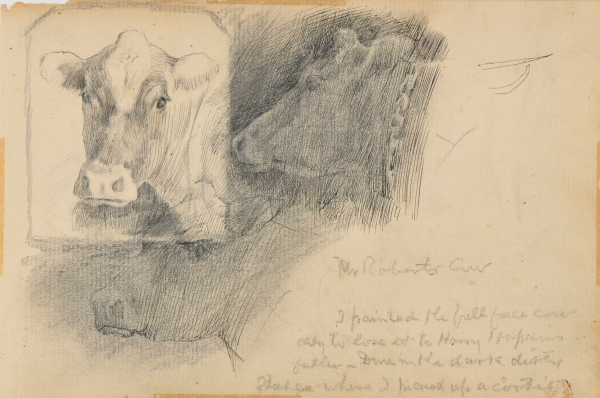 Mr Roberts Cow
I painted the full face cow
only to lose it to Harry
father - Done in the dark dirty
where I picked up a